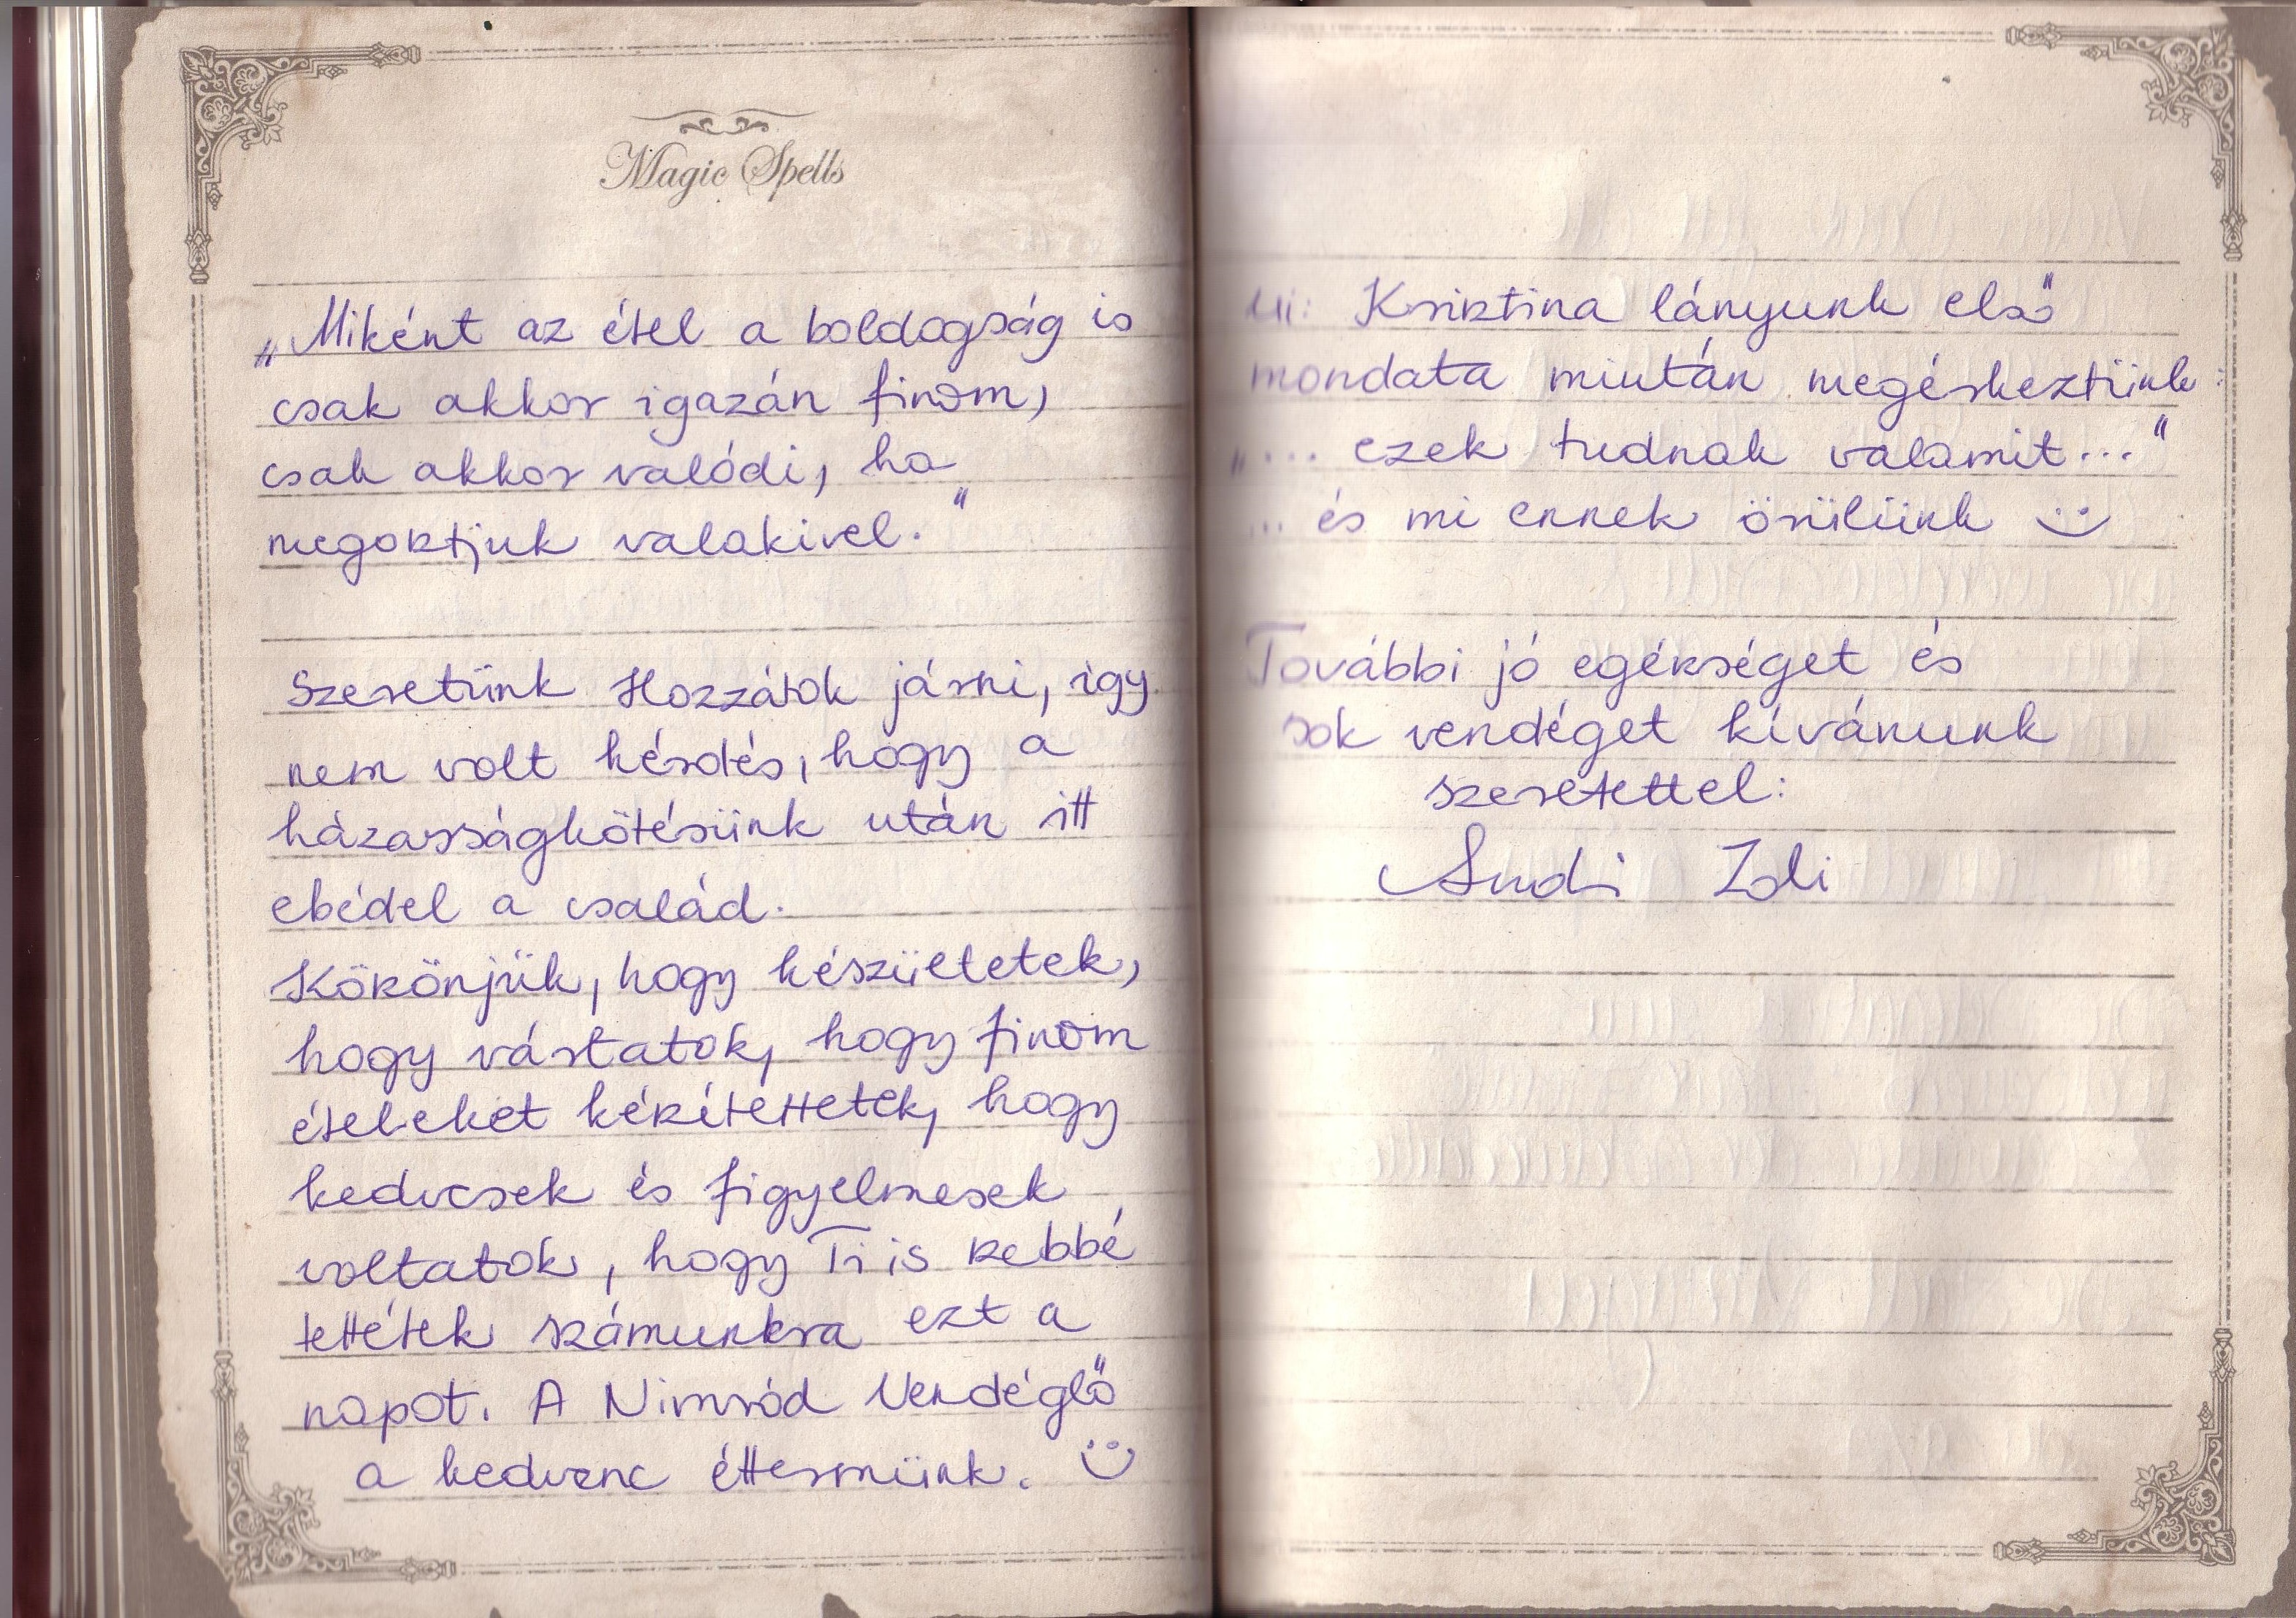 Magic Spells
„Miként az étel a boldogság is
csak akkor igazán finom,
csak akkor valódi, ha
megosztjuk valakivel."
Szeretünk Hozzátok járni, így
nem volt kérdés, hogy a
házasságkötésünk után itt
ebédel a család.
Köszönjük, hogy készültetek,
hogy vártatok, hogy finom
ételeket készítettetek, hogy
kedvesek és figyelmesek
voltatok, hogy Ti is szebbé
tettétek számunkra ezt a
napot. A Nimród Vendéglő
a kedvenc éttermünk. :)
Ui: Krisztina lányunk első
mondata miután megérkeztünk:
„... ezek tudnak valamit..."
... és mi ennek örülünk :)
További jó egészséget és
sok vendéget kívánunk
szeretettel:
Andi Zoli